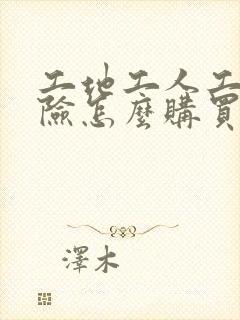 工地工人工
險怎麼購買
澤木